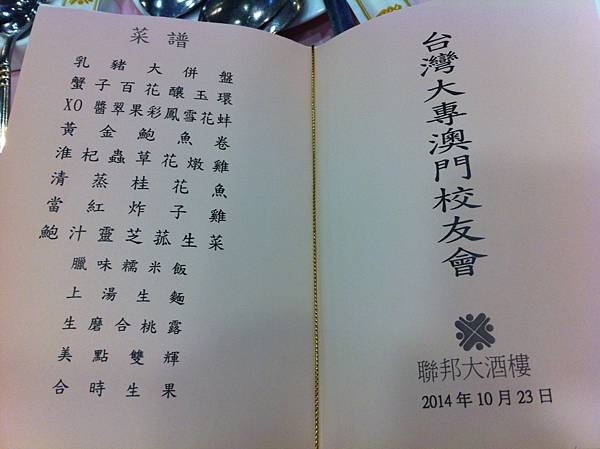 菜譜
乳豬大併盤
蟹子百花釀玉環
XO醬翠果彩鳳雪花蚌
黃金鮑魚卷
淮杞蟲草花燉雞
清蒸桂花魚
當紅炸子雞
鮑汁靈芝菰生菜
臘味糯米飯
上湯生麵
生磨合桃露
美點雙輝
合時生果
台灣大專澳門校友會
聯邦大酒樓
2014年10月23日